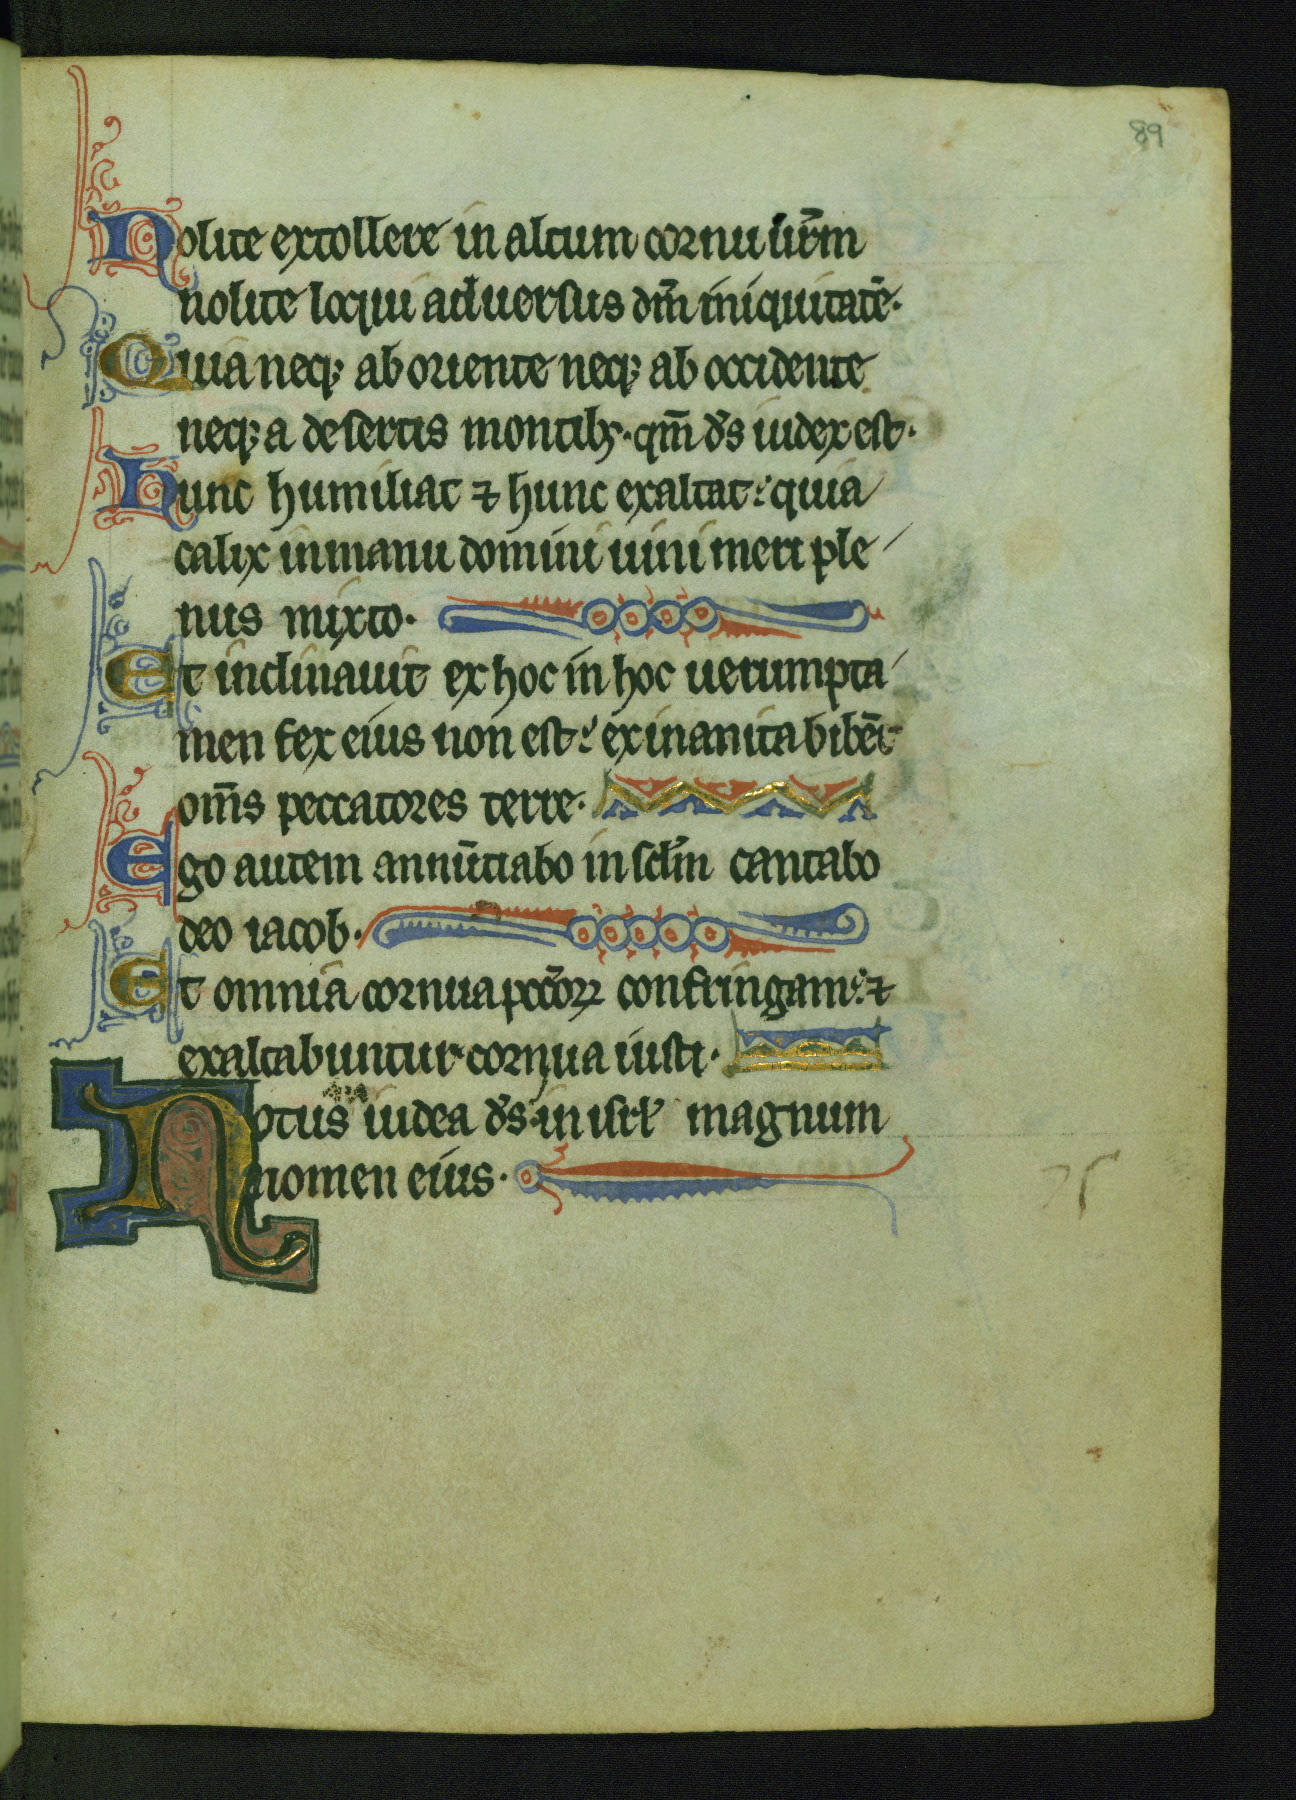 89
Nolite extollere in altum cornu ur̄m
nolite loqui aduersus dm̄ iniquitatē.
Quia neq; ab oriente neq; ab occidente
neq; a desertis montib;. qm̄ ds̄ iudex est.
Hunc humiliat ⁊ hunc exaltat: quia
calix in manu domini uini meri ple
nus mixto.
Et inclinauit ex hoc in hoc uerumpta
men fex eius non est: exinanita bibēt
om̄s peccatores terre.
Ego autem annūtiabo in sclm̄ cantabo
deo iacob.
Et omnia cornua pccōꝝ confringam: ⁊
exaltabuntur cornua iusti.
Notus iudea ds̄. in isrl̄ magnum
nomen eius.